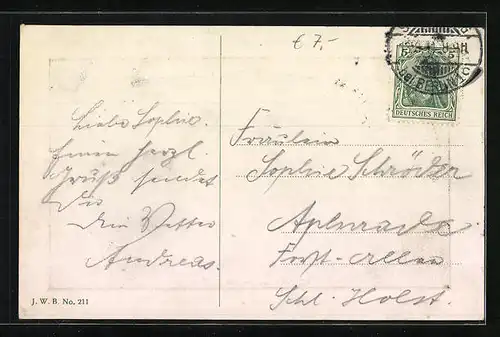 € 7.-
5 5
DEUTSCHES REICH
Liebe Sophie.
Einen herzl.
Gruß sendet
Dir
Dein Vetter
Andreas.
Fräulein
Sophie Schröder
Apenrade
Forst-Allee
Schl. Holst.
J. W. B. No. 211